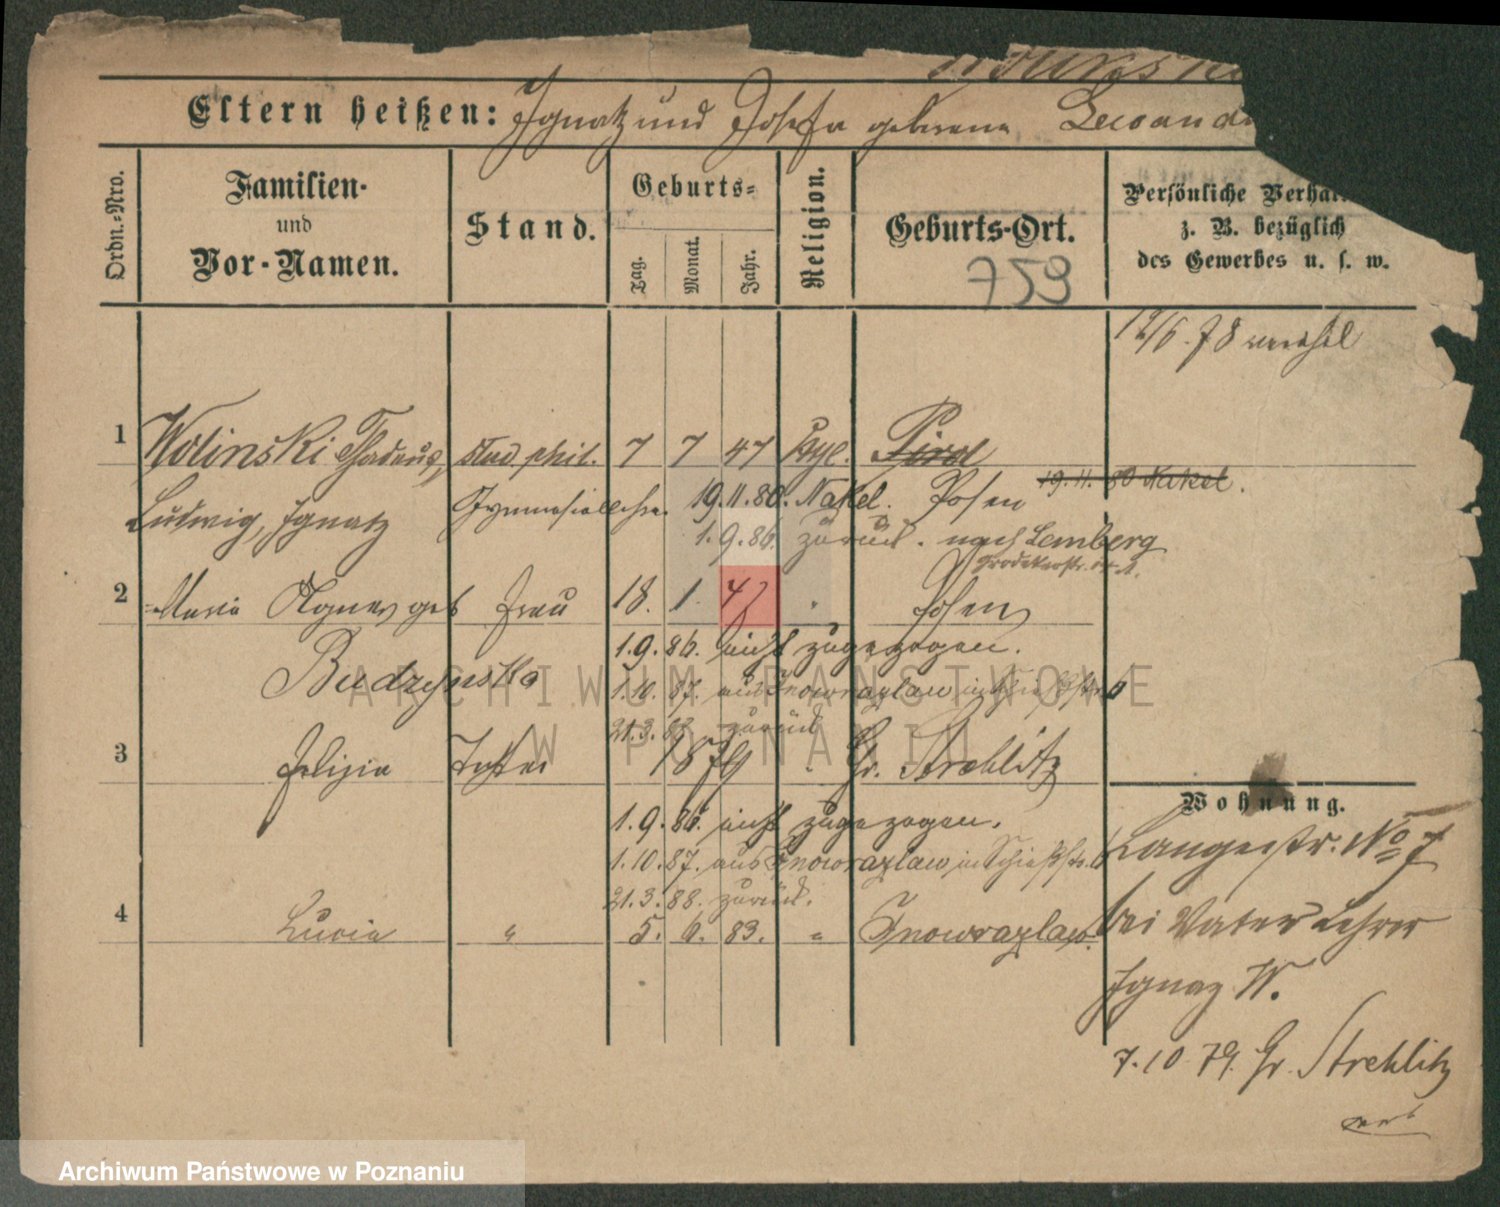 Eltern heißen: Ignatz und Josefa geborene
Ordn.-Nro.
Familien-
und
Vor-Namen.
Stand.
Geburts-
Tag.
Monat.
Jahr.
Religion.
Geburts-Ort.
759
Persönliche
z. B. bezüglich
des Gewerbes u. s. w.
12/6. 78
1 Wolinski Thadeus, stud phil. 7 7 47
19. 11. 80 Nakel.
Ludwig, Ignatz 19. 11. 80. Nakel. Posen
1. 9. 86. zurück. nach Lemberg
2 Maria Agnes geb Frau 18. 1. 47 " Posen
1. 9. 86. nicht zugezogen.
Budzynska 1. 10. 87. aus Inowrazlaw
21. 3. 88. zurück
3 Felizia Tochter 1879 " Gr. Strehlitz
1. 9. 86. nicht zugezogen.
1. 10. 87. aus Inowrazlaw in Schießstr. 6
21. 3. 88. zurück.
4 Lucia " 5. 6. 83. " Inowrazlaw.
Wohnung.
Langestr. No 7
bei Vater Lehrer
Ignaz W.
7. 10. 79. Gr. Strehlitz
ARCHIWUM PAŃSTWOWE
W POZNANIU
Archiwum Państwowe w Poznaniu